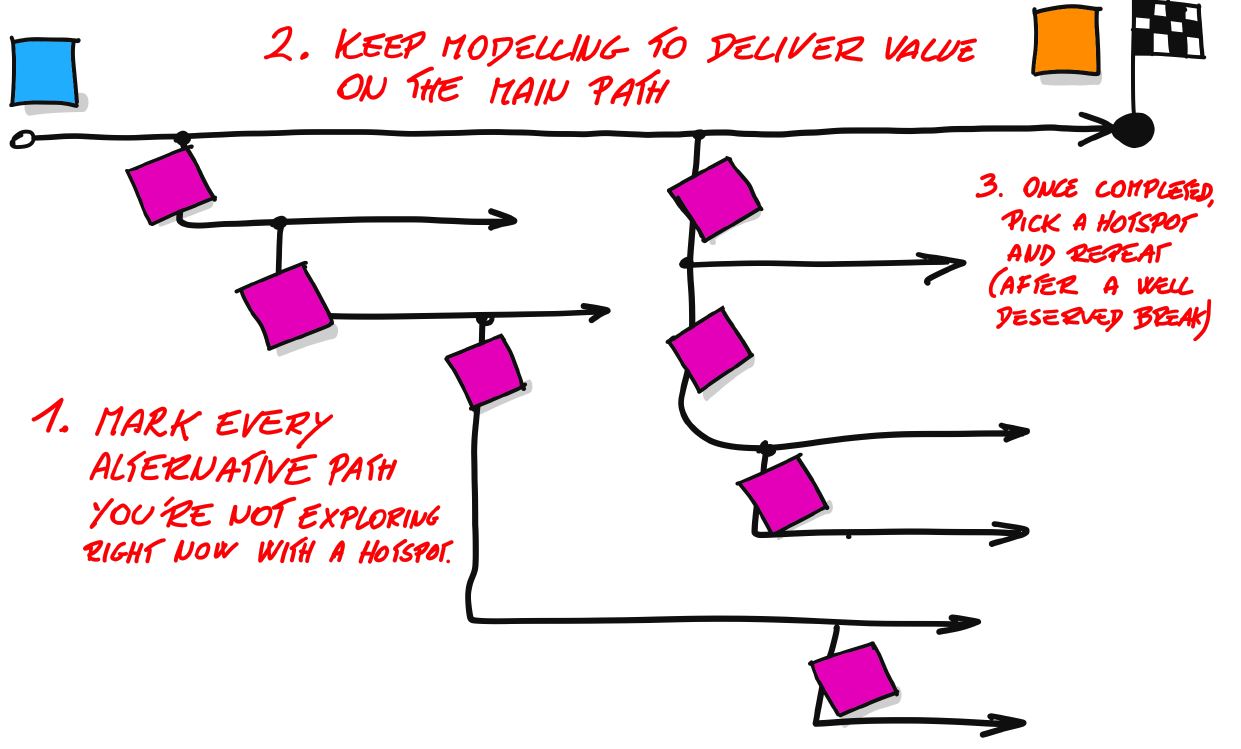 2. KEEP MODELLING TO DELIVER VALUE
ON THE MAIN PATH
3. ONCE COMPLETED,
PICK A HOTSPOT
AND REPEAT
(AFTER A WELL
DESERVED BREAK)
1. MARK EVERY
ALTERNATIVE PATH
YOU'RE NOT EXPLORING
RIGHT NOW WITH A HOTSPOT.